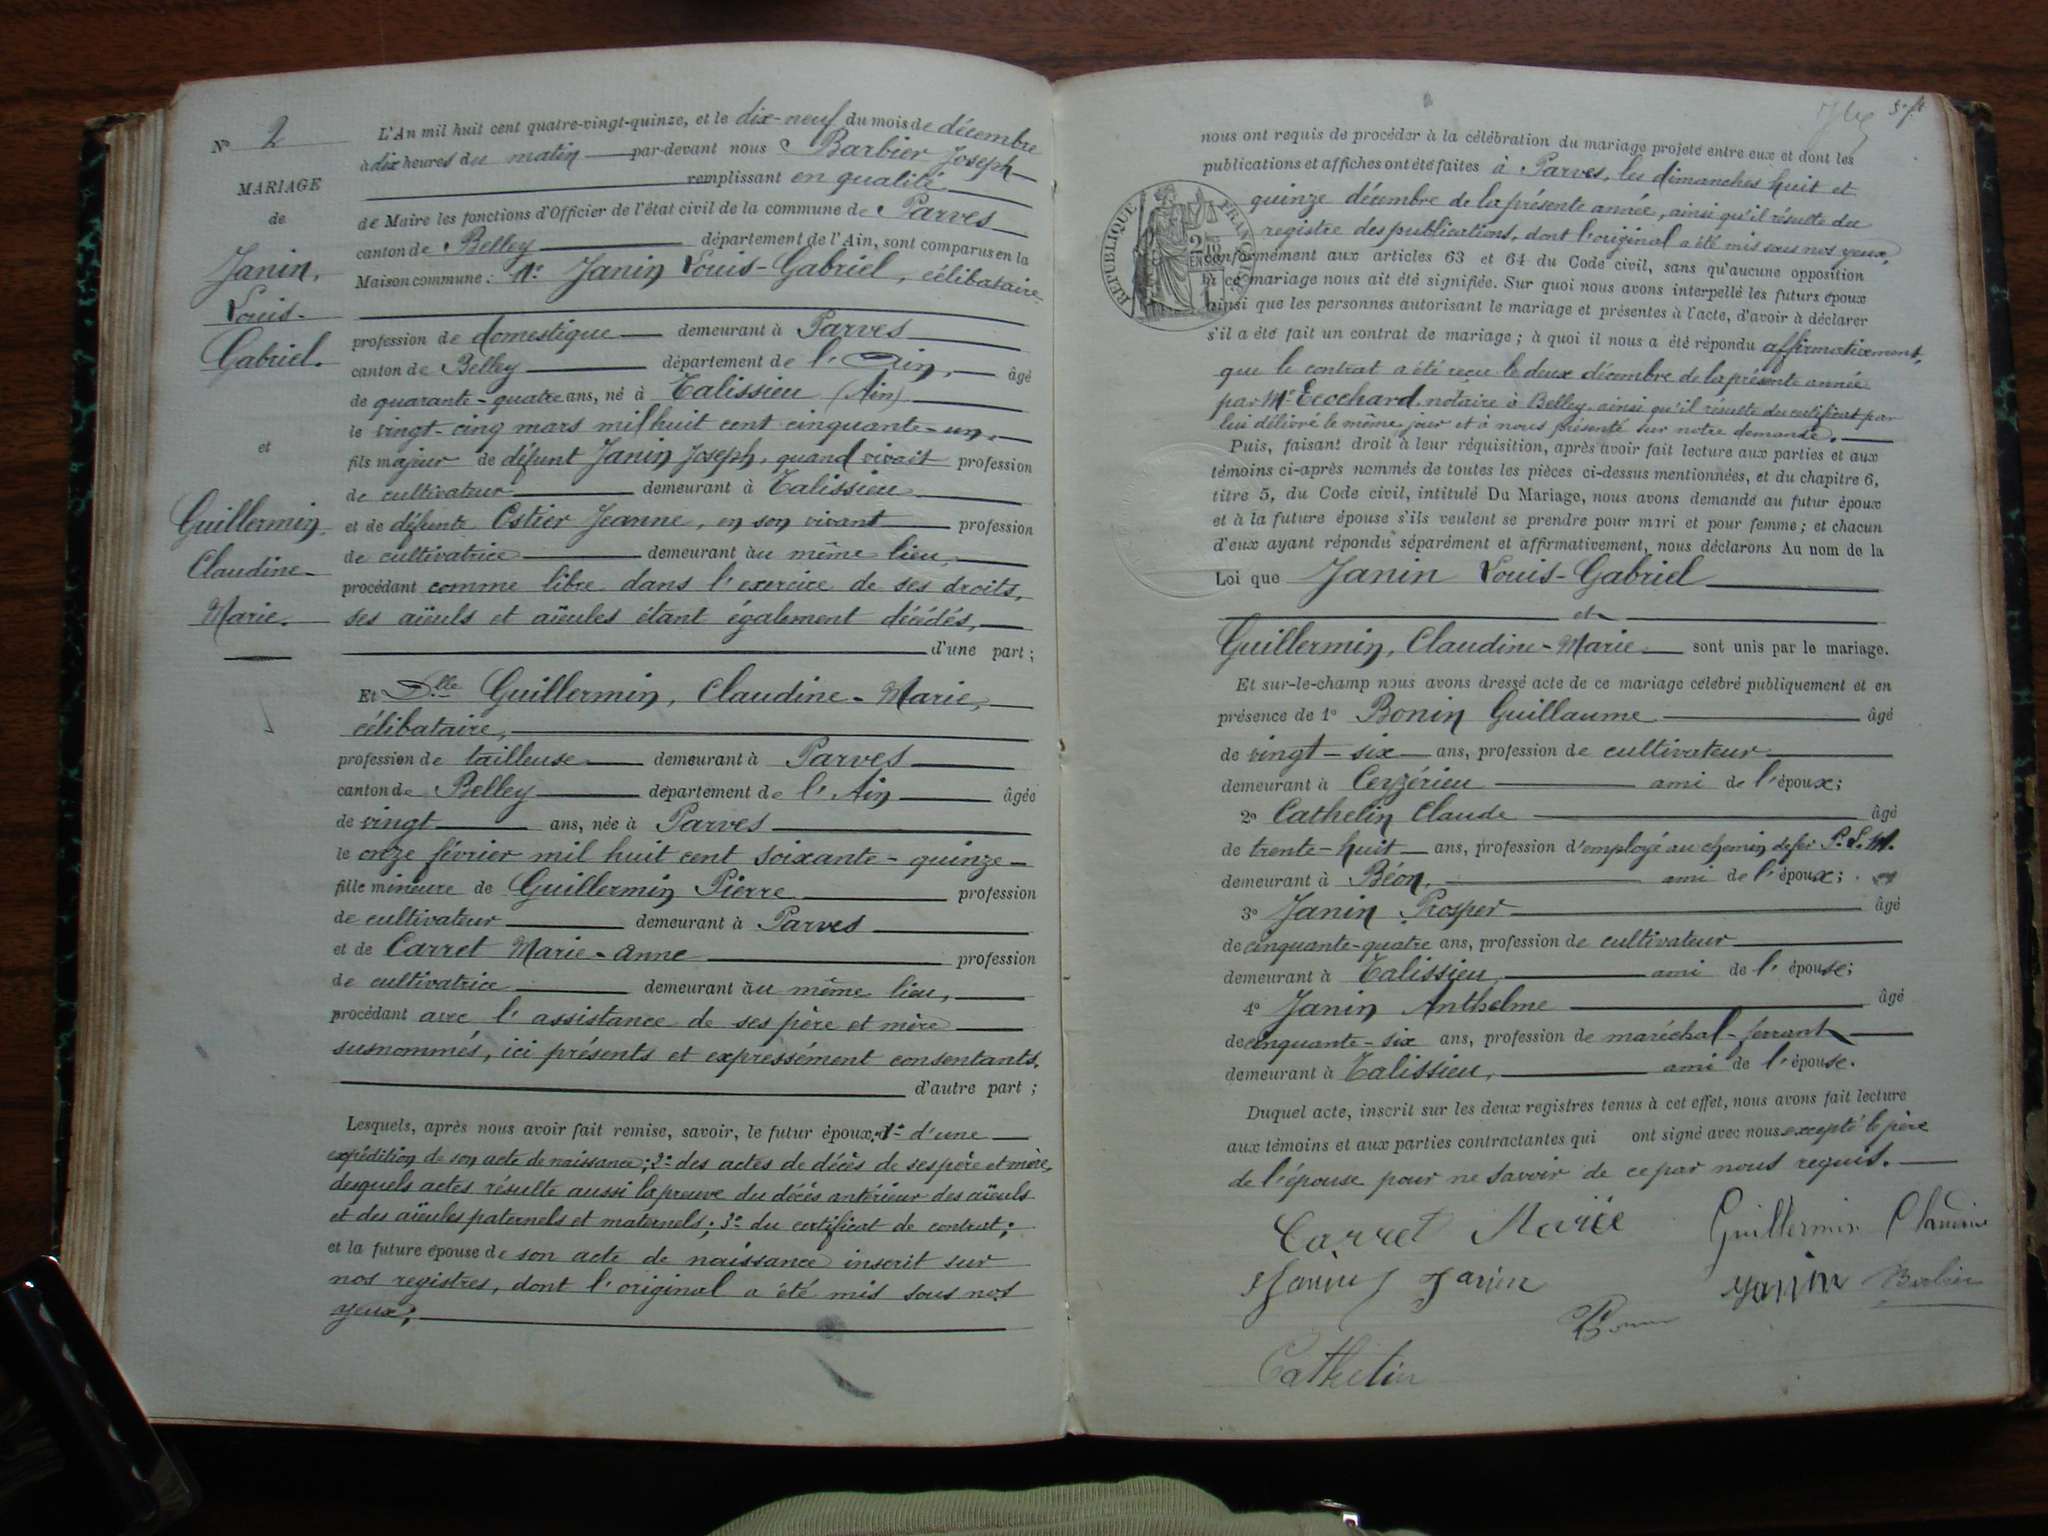 N° 2
MARIAGE
de
Janin,
Louis-
Gabriel.
et
Guillermin
Claudine-
Marie.
L'An mil huit cent quatre-vingt-quinze, et le dix-neuf du mois de décembre
à dix heures du matin par-devant nous Barbier Joseph
remplissant en qualité
de Maire les fonctions d'Officier de l'état civil de la commune de Parves
canton de Belley département de l'Ain, sont comparus en la
Maison commune : Mr Janin Louis-Gabriel, célibataire
profession de domestique demeurant à Parves
canton de Belley département de l'Ain, âgé
de quarante-quatre ans, né à Talissieu (Ain)
le vingt-cinq mars mil huit cent cinquante-un,
fils majeur de défunt Janin Joseph, quand vivait profession
de cultivateur demeurant à Talissieu
et de défunte Ostier Jeanne, en son vivant profession
de cultivatrice demeurant au même lieu,
procédant comme libre dans l'exercice de ses droits,
ses aïeuls et aïeules étant également décédés,
d'une part ;
Et Dlle Guillermin, Claudine-Marie,
célibataire,
profession de tailleuse demeurant à Parves
canton de Belley département de l'Ain âgée
de vingt ans, née à Parves
le onze février mil huit cent soixante-quinze
fille mineure de Guillermin Pierre profession
de cultivateur demeurant à Parves
et de Carret Marie-Anne profession
de cultivatrice demeurant au même lieu,
procédant avec l'assistance de ses père et mère
susnommés, ici présents et expressément consentants.
d'autre part ;
Lesquels, après nous avoir fait remise, savoir, le futur époux, 1° d'une
expédition de son acte de naissance ; 2° des actes de décès de ses père et mère,
desquels actes résulte aussi la preuve du décès antérieur des aïeuls
et des aïeules paternels et maternels ; 3° du certificat de contrat ;
et la future épouse de son acte de naissance inscrit sur
nos registres, dont l'original a été mis sous nos
yeux ;
nous ont requis de procéder à la célébration du mariage projeté entre eux et dont les
publications et affiches ont été faites à Parves, les dimanches huit et
quinze décembre de la présente année, ainsi qu'il résulte du
registre des publications, dont l'original a été mis sous nos yeux,
RÉPUBLIQUE FRANÇAISE
conformément aux articles 63 et 64 du Code civil, sans qu'aucune opposition
à ce mariage nous ait été signifiée. Sur quoi nous avons interpellé les futurs époux
ainsi que les personnes autorisant le mariage et présentes à l'acte, d'avoir à déclarer
s'il a été fait un contrat de mariage ; à quoi il nous a été répondu affirmativement,
que le contrat a été reçu le deux décembre de la présente année
par Me Ecochard, notaire à Belley, ainsi qu'il résulte du certificat par
lui délivré le même jour et à nous présenté sur notre demande.
Puis, faisant droit à leur réquisition, après avoir fait lecture aux parties et aux
témoins ci-après nommés de toutes les pièces ci-dessus mentionnées, et du chapitre 6,
titre 5, du Code civil, intitulé Du Mariage, nous avons demandé au futur époux
et à la future épouse s'ils veulent se prendre pour mari et pour femme ; et chacun
d'eux ayant répondu séparément et affirmativement, nous déclarons Au nom de la
Loi que Janin Louis-Gabriel
et
Guillermin, Claudine-Marie sont unis par le mariage.
Et sur-le-champ nous avons dressé acte de ce mariage célébré publiquement et en
présence de 1° Bonin Guillaume âgé
de vingt-six ans, profession de cultivateur
demeurant à Ceyzérieu ami de l'époux ;
2° Cathelin Claude âgé
de trente-huit ans, profession d'employé au chemin de fer P.L.M.
demeurant à Béon, ami de l'époux ;
3° Janin Prosper âgé
de cinquante-quatre ans, profession de cultivateur
demeurant à Talissieu, ami de l'épouse ;
4° Janin Anthelme âgé
de cinquante-six ans, profession de maréchal-ferrant
demeurant à Talissieu, ami de l'épouse.
Duquel acte, inscrit sur les deux registres tenus à cet effet, nous avons fait lecture
aux témoins et aux parties contractantes qui ont signé avec nous excepté le père
de l'épouse pour ne savoir de ce par nous requis.
Carret Marie Guillermin Claudine
Janin Janin Janin Barbier
Bonin
Cathelin